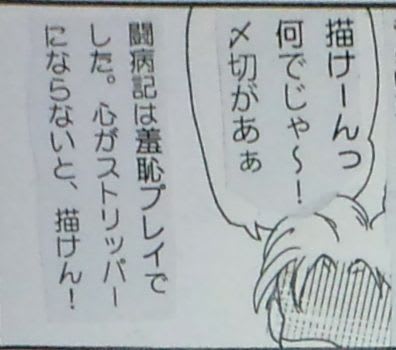 描けーんっ
何でじゃ～！
〆切があぁ
闘病記は羞恥プレイで
した。心がストリッパー
にならないと、描けん！